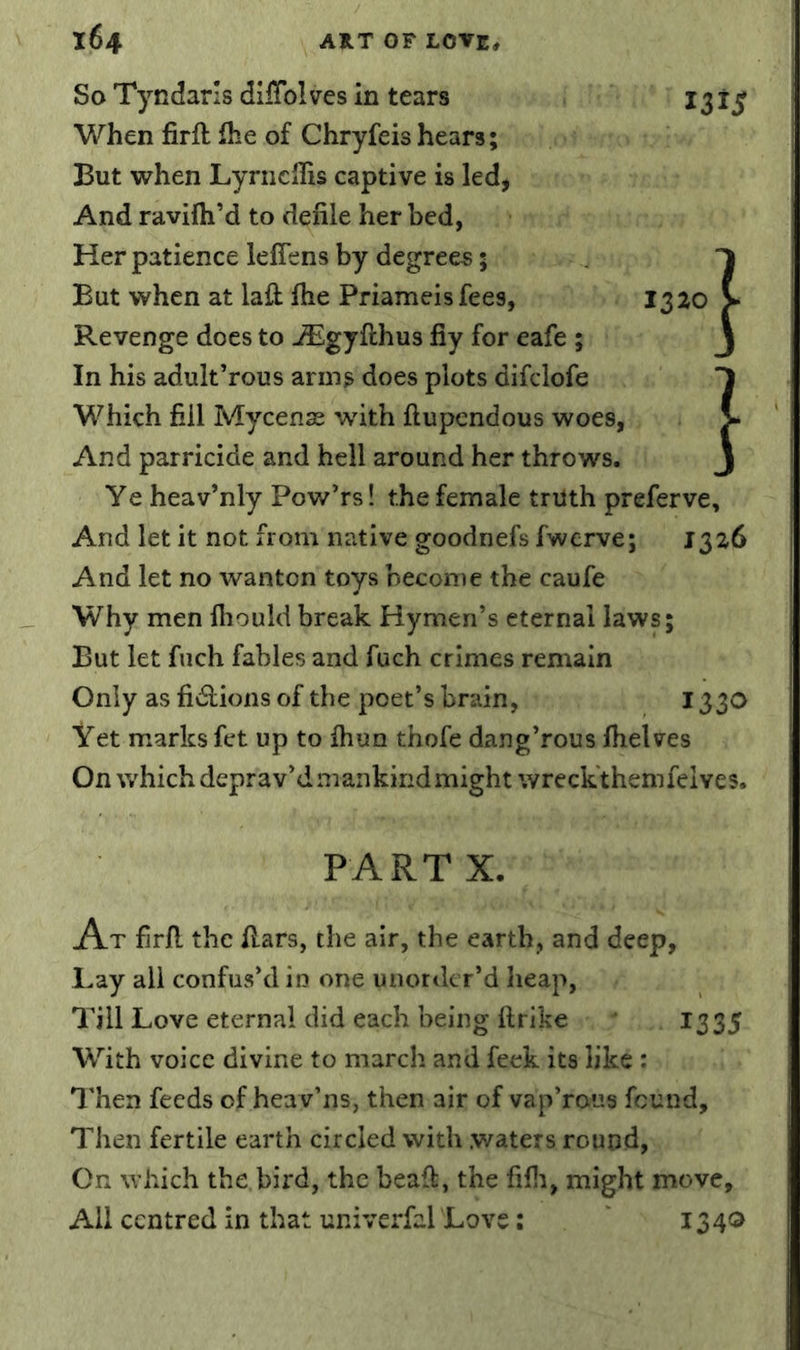 164 ART OF LOVE.
So Tyndaris diſſolves in tears 1315
When firſt ſhe of Chryſeis hears;
But when Lyrneſſis captive is led,
And raviſh'd to defile her bed,
Her patience leſſens by degrees;
But when at laſt ſhe Priameis ſees, 1320
Revenge does to Ægyſthus fly for eaſe;
In his adult'rous arms does plots diſcloſe
Which fill Mycenæ with ſtupendous woes,
And parricide and hell around her throws.
Ye heav'nly Pow'rs! the female truth preſerve,
And let it not from native goodneſs ſwerve; 1326
And let no wanton toys become the cauſe
Why men ſhould break Hymen's eternal laws;
But let ſuch fables and ſuch crimes remain
Only as fictions of the poet's brain, 1330
Yet marks ſet up to ſhun thoſe dang'rous ſhelves
On which deprav'd mankind might wreck themſelves.
PART X.
At firſt the ſtars, the air, the earth, and deep,
Lay all confus'd in one unorder'd heap,
Till Love eternal did each being ſtrike 1335
With voice divine to march and ſeek its like:
Then ſeeds of heav'ns, then air of vap'rous ſound,
Then fertile earth circled with waters round,
On which the bird, the beaſt, the fiſh, might move,
All centred in that univerſal Love: 1340